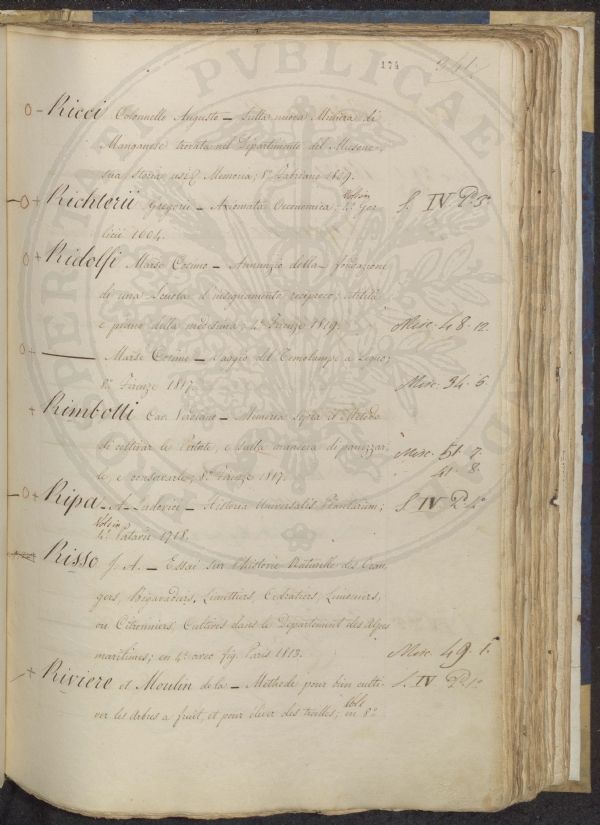 174
Ricci Colonnello Augusto — Sulla nuova Miniera di
Manganese trovata nel Dipartimento del Musone
sua Storia, usi & Memoria; 8º Fabriano 1809.
Richterii Gregorii — Axiomata Oeconomica; Vol. in 4º Gor-
licii 1604. S. IV. P. 3ª
Ridolfi March. Cosimo — Annunzio della fondazione
di una Scuola d'insegnamento reciproco; utilità
e piano della medesima; 4º Firenze 1819. Misc. 48. 12.
— March. Cosimo — Saggio del Termolampo a Legno;
8º Firenze 1817. Misc. 34. 6.
Rimbotti Cav. Verdiano — Memoria sopra il Metodo
di coltivar le Patate, e sulla maniera di panizzar-
le, e conservarle; 8º Firenze 1817. Misc. 51. 7.
41. 8.
Ripa A. Ludovici — Historia Universalis Plantarum;
Vol. in 4º Patavii 1718. S. IV. P. 4ª
Risso J. A. — Essai sur l'histoire Naturelle des Oran-
gers, Bigaradiers, Limettiers, Cedratiers, Limoniers,
ou Citronniers, Cultivés dans le Département des Alpes
maritimes; en 4º avec fig. Paris 1813. Misc. 49. 1.
Riviere et Moulin de la — Methode pour bien culti-
ver les Arbres a fruit, et pour élever des treilles; Vol. in 8º S. IV. P. 1ª
PVBLICAE